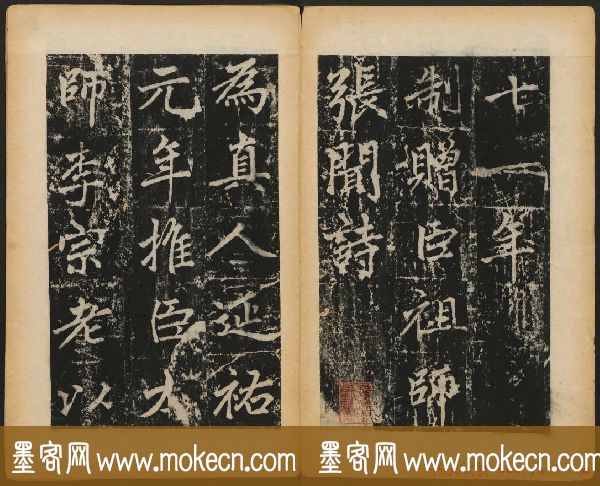 十一年
制贈臣祖師
張聞詩
為真人延祐
元年推臣大
師李宗老以
墨客网 www.mokecn.com 墨客网 www.mokecn.com